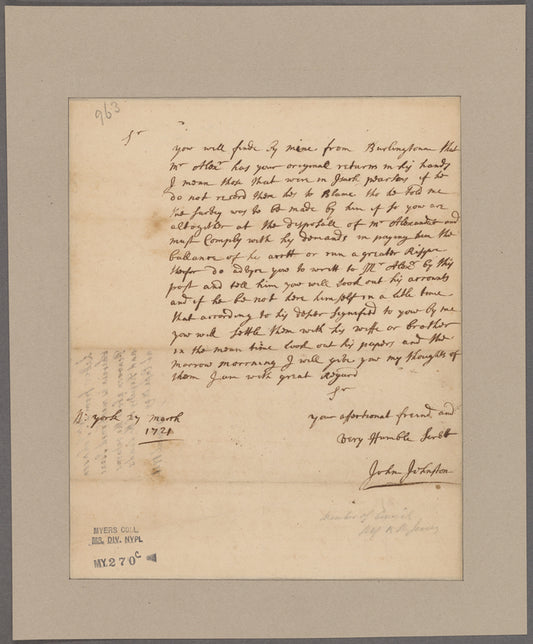 963
Sr
you will finde by mine from Burlingtone that
Mr Alexr has your original returns in his hands
I mean those that were in Isack pearsons if he
do not record them hes to Blame tho he told me
the survey was to be made by him if so you are
altogether at the disposall of Mr Alexander and
must Comply with his demands in paying him the
ballance of he or run a greater
do advyse you to wrott to Mr Alexr by this
post and tell him you will Look out his accounts
and if he be not here himself in a litle time
that according to his desyer signefied to you by me
you will settle them with his wiffe or brother
in the mean time Look out his papers and the
morrow morrning I will give you my thoughts of
them I am with great Regard
Sr
your affectionat freind and
Very Humble Servtt
John Johnston
N: york 27 march
1721
Member of Council
MYERS COLL.
MS. DIV. NYPL
MY. 270c